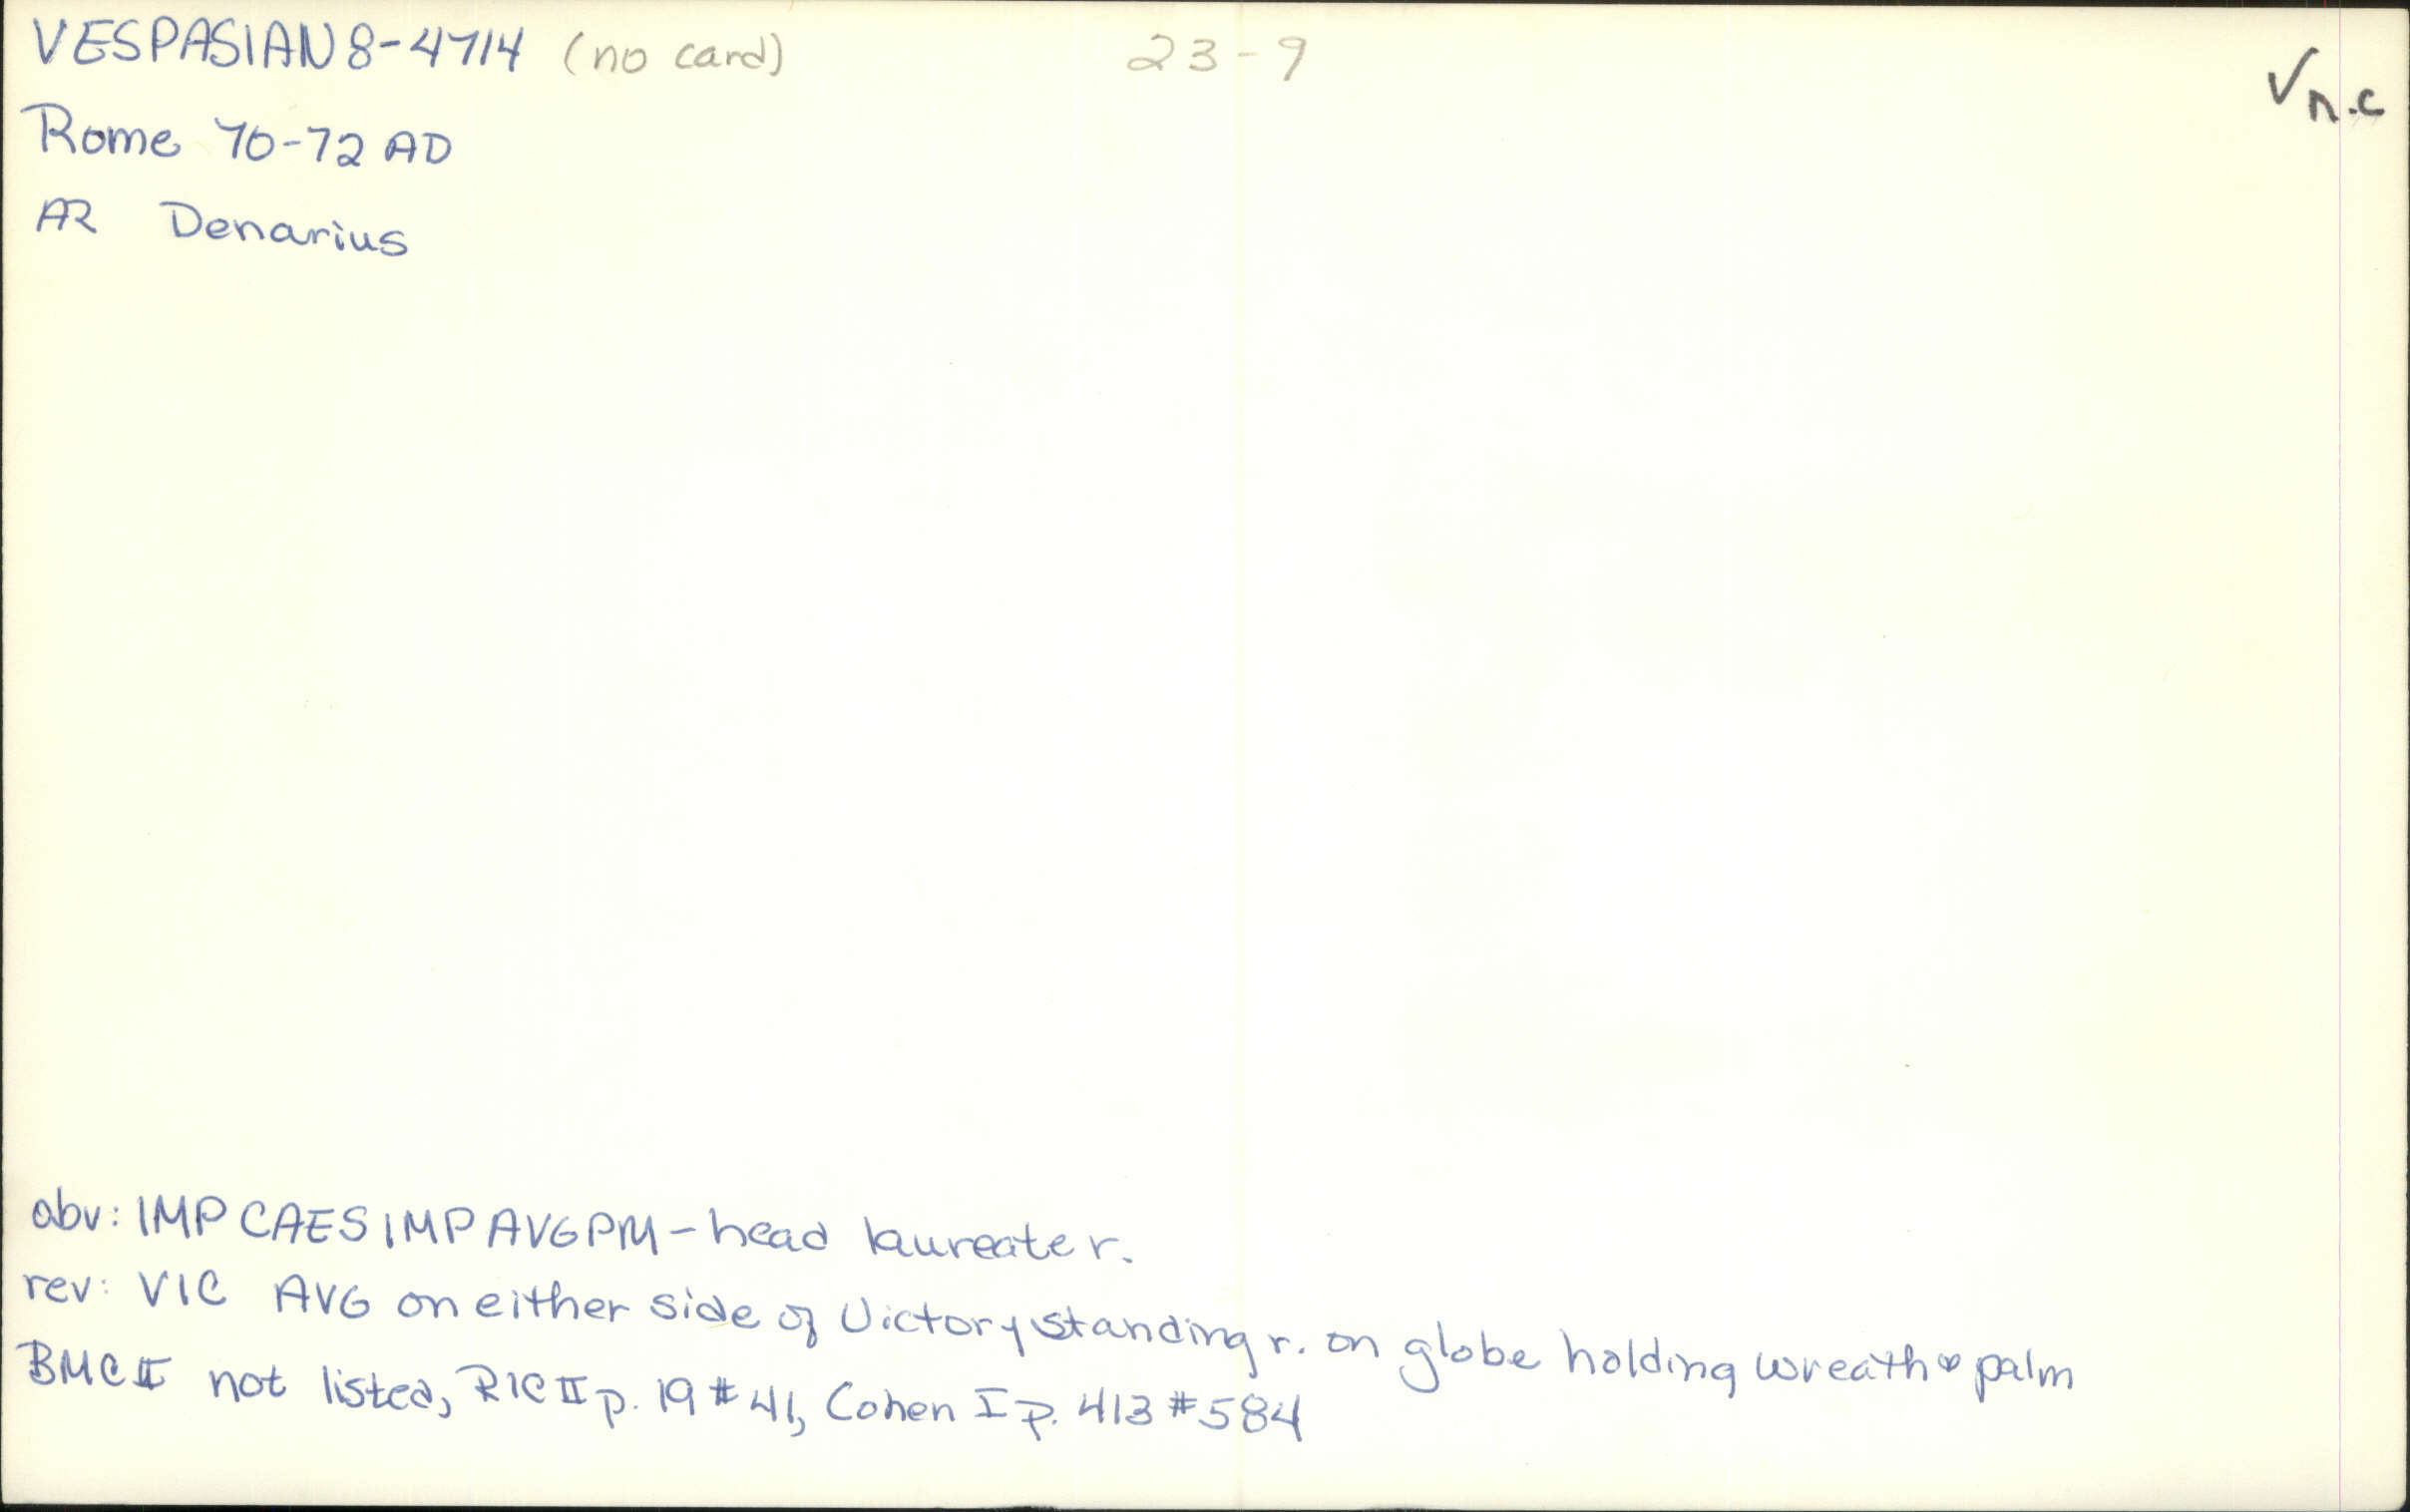 VESPASIAN 8-4714 (no card) 23-9 √n.c
Rome 70-72 AD
AR Denarius
obv: IMP CAES IMP AVG PM - head laureate r.
rev: VIC AVG on either side of Victory standing r. on globe holding wreath & palm
BMC II not listed, RIC II p. 19 #41, Cohen I p. 413 #584